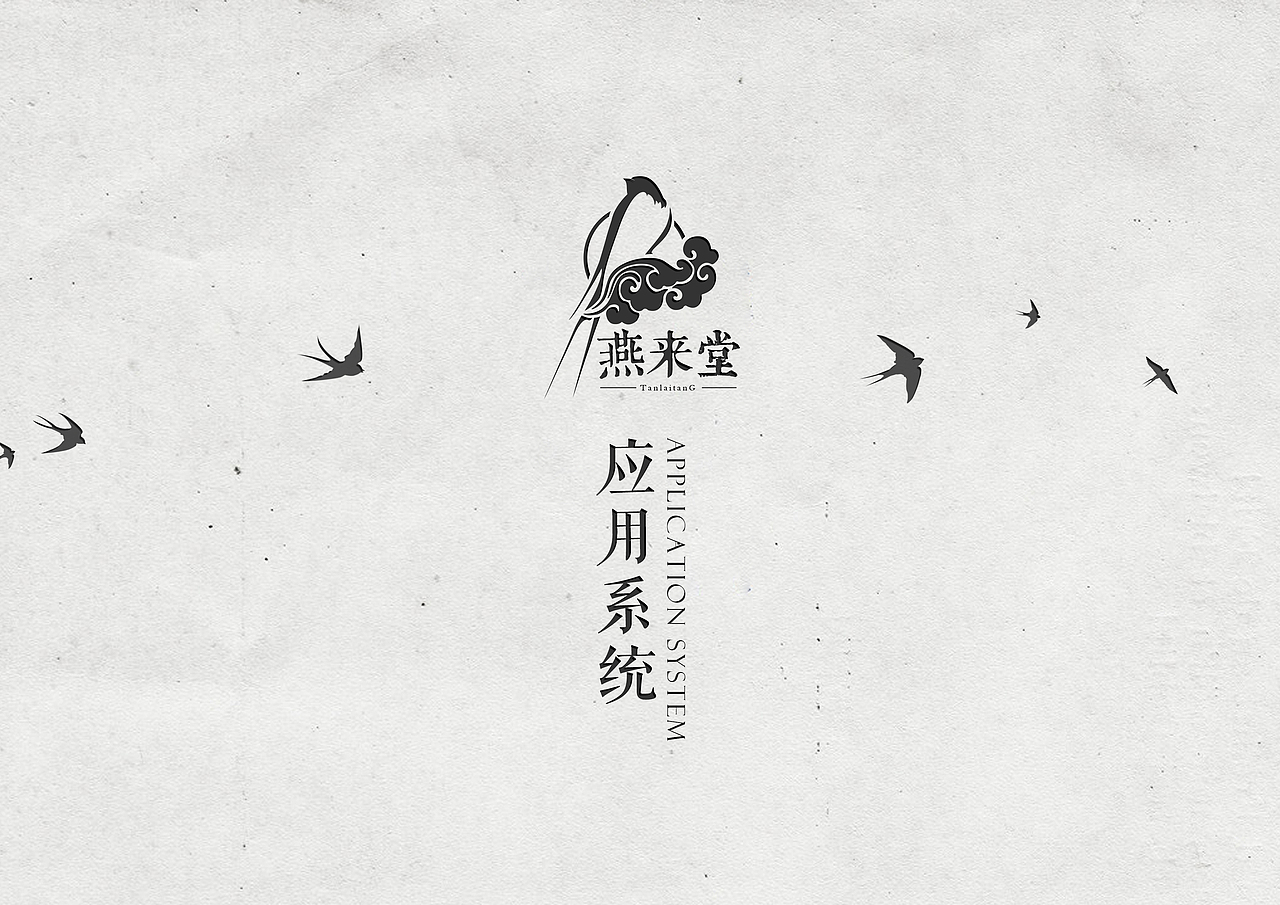 燕来堂
TanlaitanG
应用系统
APPLICATION SYSTEM